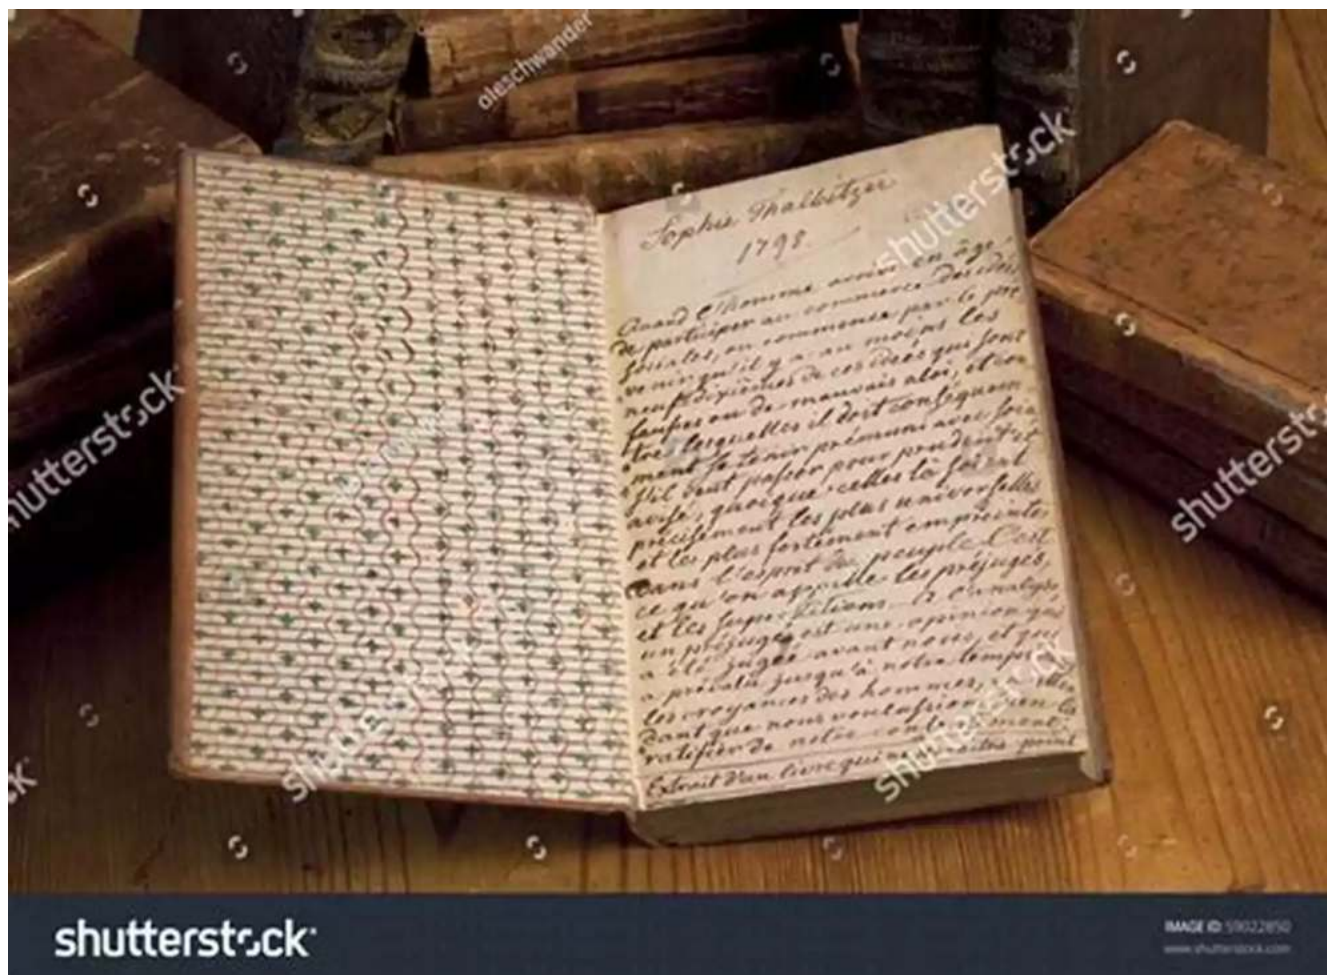 oleschwander
shutterstock
Sophie Thalbitzer
1798
Quand l'homme arrive en âge
de participer au commerce des idées
sociales, on commence par le pré
venir qu'il y a au moins les
neuf dixièmes de ces idées qui sont
fausses ou de mauvais aloi, et con
tre lesquelles il doit conséquem
ment se tenir prémuni avec soin
s'il veut passer pour prudent et
avisé; quoique celles là soient
précisément les plus universelles
et les plus fortement empreintes
dans l'esprit du peuple. C'est
ce qu'on appelle les préjugés,
et les superstitions. A l'analyse,
un préjugé est une opinion qui
a été jugée avant nous, et qui
a prévalu jusqu'à notre temps
les croyances des hommes,
dant que nous voulussions
ratifier de notre
Extrait d'un livre qui
shutterstock
shutterstock
shutterstock
shutterstock
shutterstock
shutterstock
IMAGE ID: 59022850
www.shutterstock.com